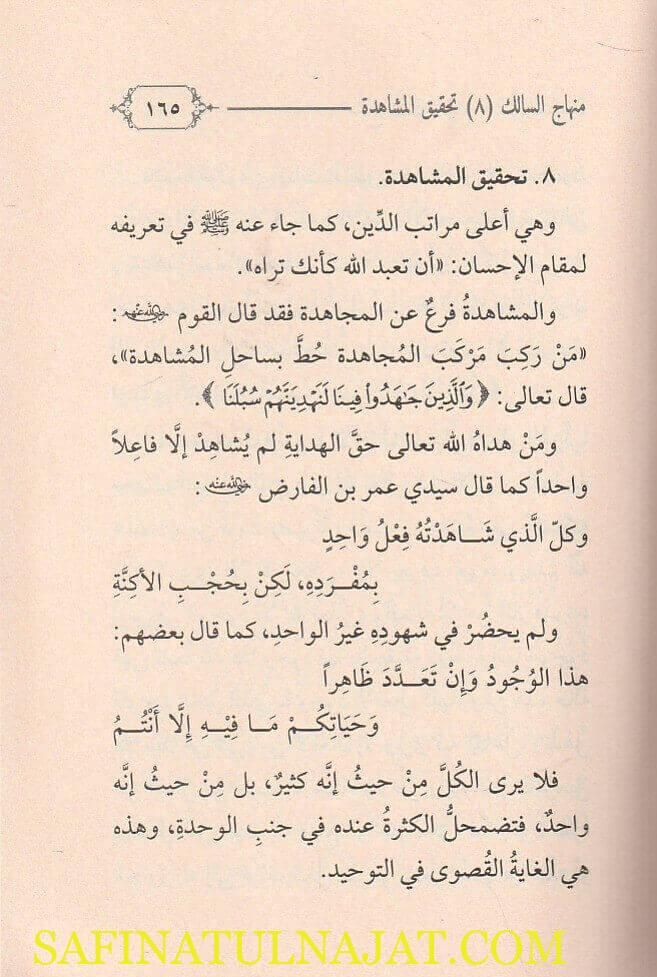 منهاج السالك (٨) تحقيق المشاهدة ١٦٥
٨. تحقيق المشاهدة.
وهي أعلى مراتب الدِّين، كما جاء عنه ﷺ في تعريفه
لمقام الإحسان: «أن تعبد الله كأنك تراه».
والمشاهدةُ فرعٌ عن المجاهدة فقد قال القوم رضي الله عنهم:
«مَنْ رَكِبَ مَرْكَبَ المُجاهدة حُطَّ بساحلِ المُشاهدة»،
قال تعالى: ﴿وَٱلَّذِينَ جَٰهَدُواْ فِينَا لَنَهۡدِيَنَّهُمۡ سُبُلَنَا﴾.
ومَنْ هداهُ الله تعالى حقَّ الهدايةِ لم يُشاهِدْ إلَّا فاعِلاً
واحداً كما قال سيدي عمر بن الفارض رضي الله عنه:
وكلّ الَّذي شَاهَدْتُهُ فِعْلُ وَاحِدٍ
بِمُفْرَدِهِ، لَكِنْ بِحُجْبِ الأكِنَّةِ
ولم يحضُرْ في شهودِهِ غيرُ الواحدِ، كما قال بعضهم:
هذا الوُجُودُ وَإِنْ تَعَدَّدَ ظَاهِراً
وَحَيَاتِكُمْ مَا فِيْهِ إِلَّا أَنْتُمُ
فلا يرى الكُلَّ مِنْ حيثُ إنَّه كثيرٌ، بل مِنْ حيثُ إنَّه
واحدٌ، فتضمحلُّ الكثرةُ عنده في جنبِ الوحدةِ، وهذه
هي الغايةُ القُصوى في التوحيد.
SAFINATULNAJAT.COM